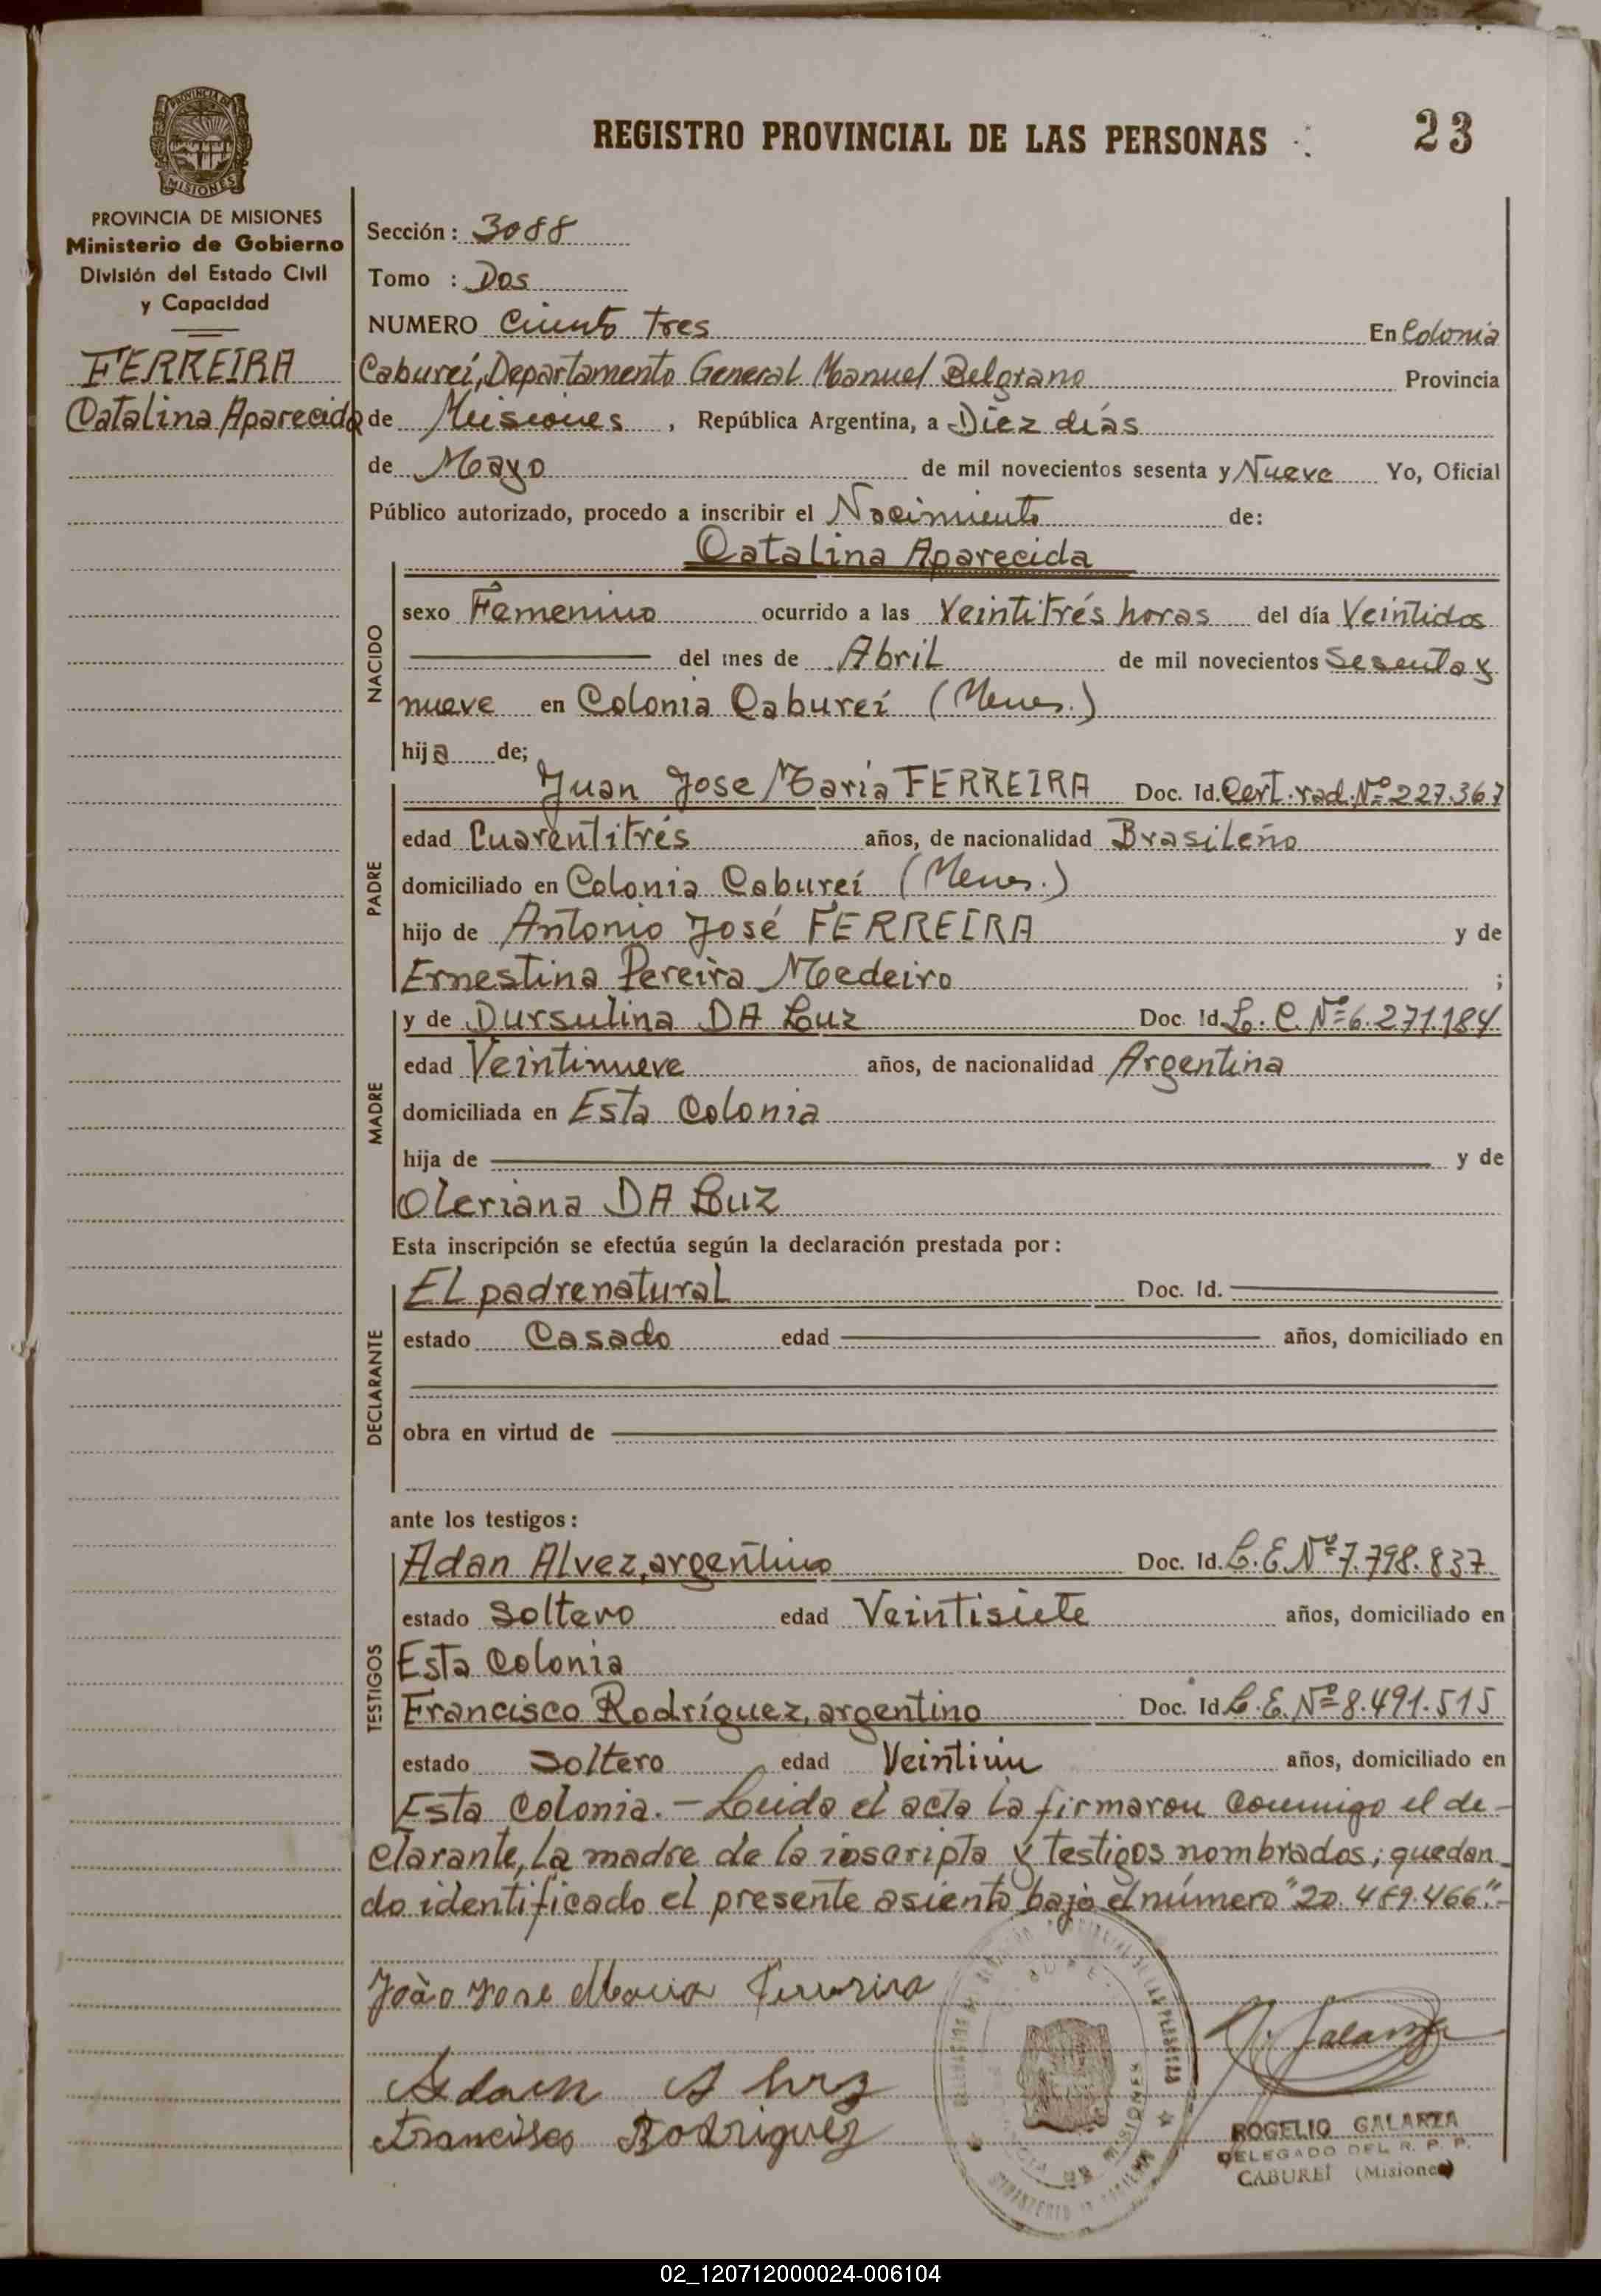 REGISTRO PROVINCIAL DE LAS PERSONAS
23
PROVINCIA DE MISIONES
MISIONES
PROVINCIA DE MISIONES
Ministerio de Gobierno
División del Estado Civil
y Capacidad
FERREIRA
Catalina Aparecida
Sección: 3088
Tomo : Dos
NUMERO Ciento tres En Colonia
Cabureí, Departamento General Manuel Belgrano Provincia
de Misiones, República Argentina, a Diez días
de Mayo de mil novecientos sesenta y Nueve Yo, Oficial
Público autorizado, procedo a inscribir el Nacimiento de:
Catalina Aparecida
NACIDO
sexo Femenino ocurrido a las Veintitrés horas del día Veintidos
del mes de Abril de mil novecientos Sesenta y
nueve en Colonia Cabureí (Mnes.)
hija de;
PADRE
Juan Jose Maria FERREIRA Doc. Id. Cert. rad. Nº 227.367
edad Cuarentitrés años, de nacionalidad Brasileño
domiciliado en Colonia Cabureí (Mnes.)
hijo de Antonio José FERREIRA y de
Ernestina Pereira Medeiro ;
MADRE
y de Dursulina DA Luz Doc. Id. L. C. Nº 6.271.184
edad Veintinueve años, de nacionalidad Argentina
domiciliada en Esta Colonia
hija de y de
Oleriana DA Luz
Esta inscripción se efectúa según la declaración prestada por:
DECLARANTE
El padre natural Doc. Id.
estado Casado edad años, domiciliado en
obra en virtud de
ante los testigos:
TESTIGOS
Adan Alvez, argentino Doc. Id. L. E. Nº 7.798.837
estado Soltero edad Veintisiete años, domiciliado en
Esta Colonia
Francisco Rodríguez, argentino Doc. Id L. E. Nº 8.491.515
estado Soltero edad Veintiún años, domiciliado en
Esta Colonia.- Leida el acta la firmaron conmigo el de-
clarante, la madre de la inscripta y testigos nombrados; quedan-
do identificado el presente asiento bajo el número "20.489.466".-
João Jose Maria Ferreira
Adam Alvez
Francisco Rodriguez
Galarza
ROGELIO GALARZA
DELEGADO DEL R. P. P.
CABUREÍ (Misiones)
02_120712000024-006104